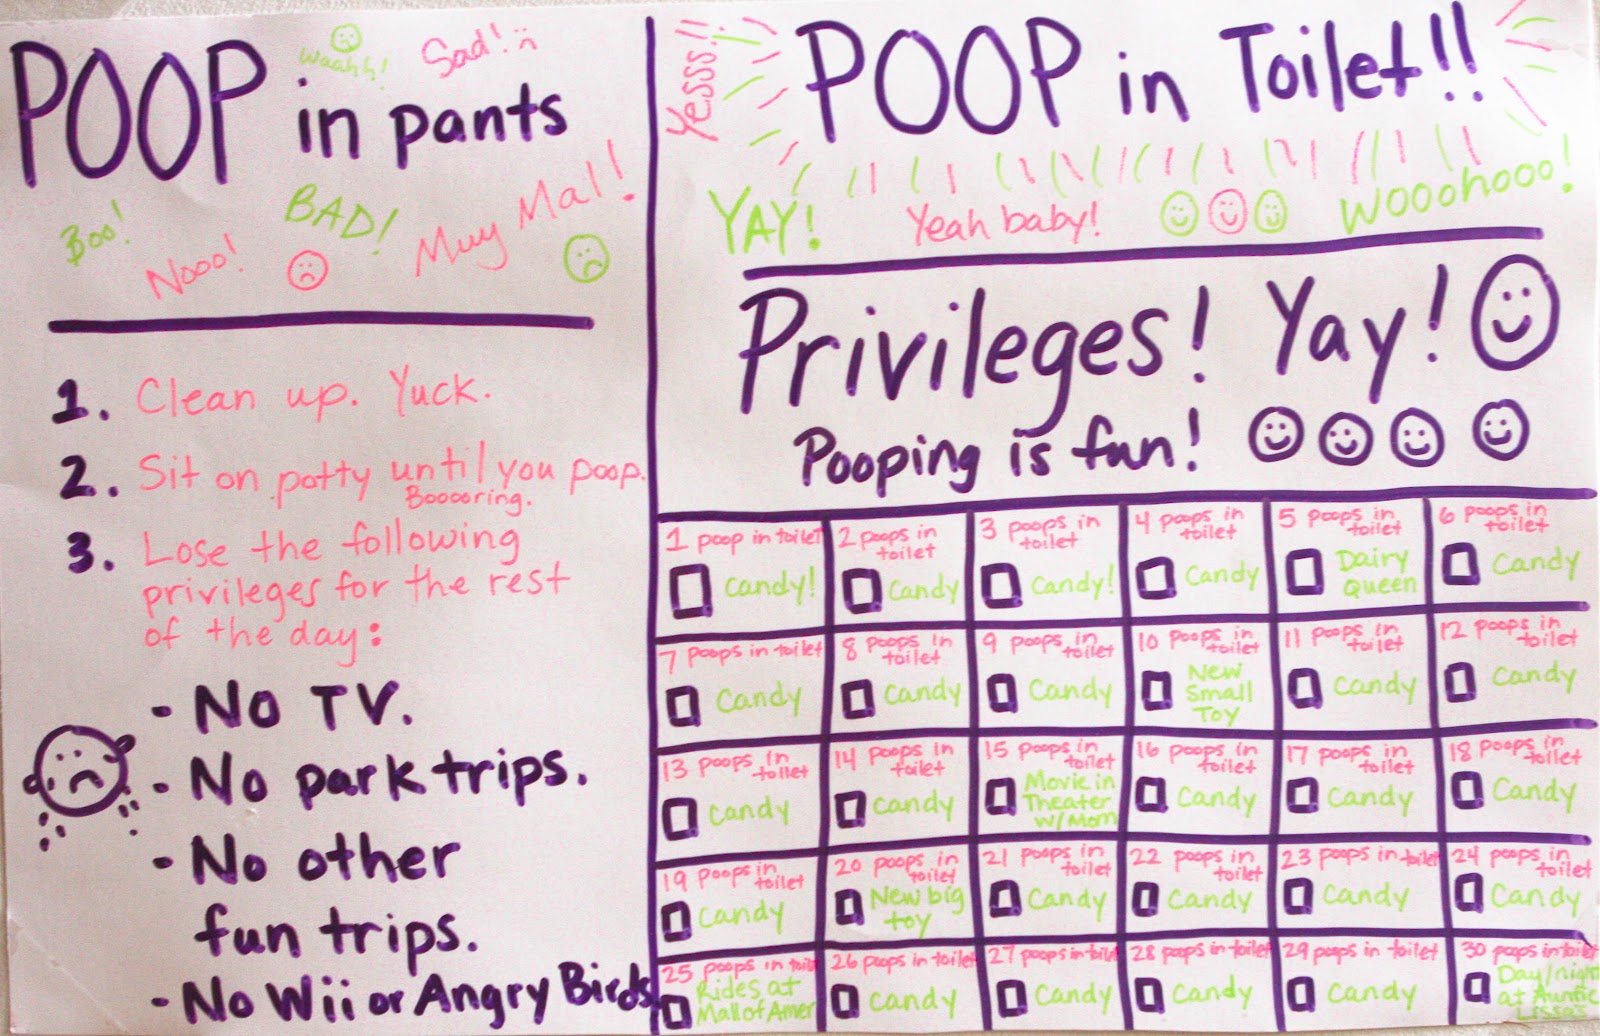 POOP in pants
waahh!
Sad!
Boo!
Nooo!
BAD!
Muy Mal!
1. Clean up. Yuck.
2. Sit on potty until you poop.
Boooring.
3. Lose the following
privileges for the rest
of the day:
- No TV.
- No park trips.
- No other
fun trips.
- No Wii or Angry Birds
Yesss!!
POOP in Toilet!!
YAY!
Yeah baby!
Wooohooo!
Privileges! Yay!
Pooping is fun!
1 poop in toilet
Candy!
2 poops in
toilet
Candy
3 poops in
toilet
Candy!
4 poops in
toilet
Candy
5 poops in
toilet
Dairy
Queen
6 poops in
toilet
Candy
7 poops in toilet
Candy
8 poops in
toilet
Candy
9 poops in
toilet
Candy
10 poops in
toilet
New
Small
Toy
11 poops in
toilet
Candy
12 poops in
toilet
Candy
13 poops in
toilet
Candy
14 poops in
toilet
Candy
15 poops in
toilet
Movie in
Theater
w/Mom
16 poops in
toilet
Candy
17 poops in
toilet
Candy
18 poops in
toilet
Candy
19 poops in
toilet
Candy
20 poops in
toilet
New big
toy
21 poops in
toilet
Candy
22 poops in
toilet
Candy
23 poops in toilet
Candy
24 poops in
toilet
Candy
25 poops in toilet
Rides at
Mall of Amer
26 poops in toilet
Candy
27 poops in toilet
Candy
28 poops in toilet
Candy
29 poops in toilet
Candy
30 poops in toilet
Day/night
at Auntie
Lissa's